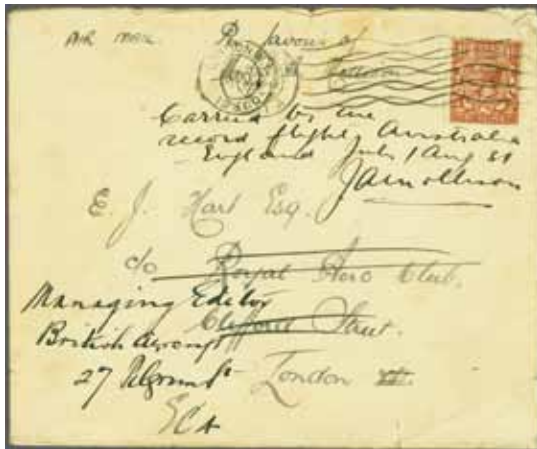 AIR MAIL
Per favour of
Mollison
Carried by me
record flight Australia
England July/Aug 31
JAMollison
E. J. Hart Esq.
c/o Royal Aero Club.
Managing Editor
Clifford Street.
British Aircraft
27
London
EC4